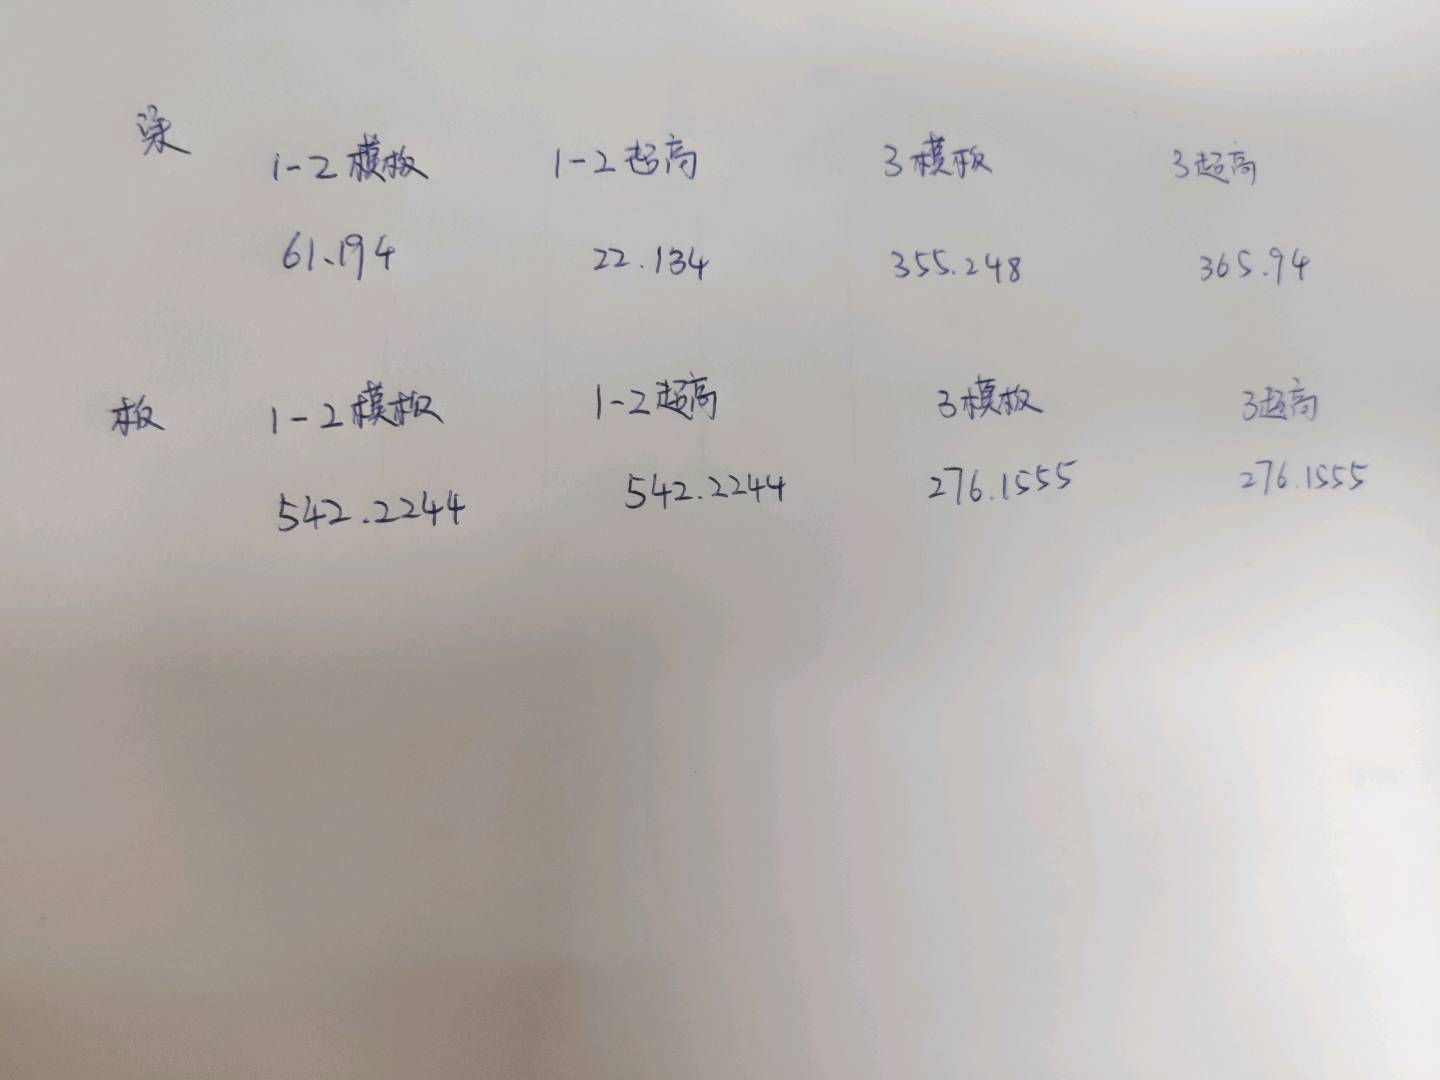 梁 1-2模板 1-2超高 3模板 3超高
61.194 22.134 355.248 365.94
板 1-2模板 1-2超高 3模板 3超高
542.2244 542.2244 276.1555 276.1555